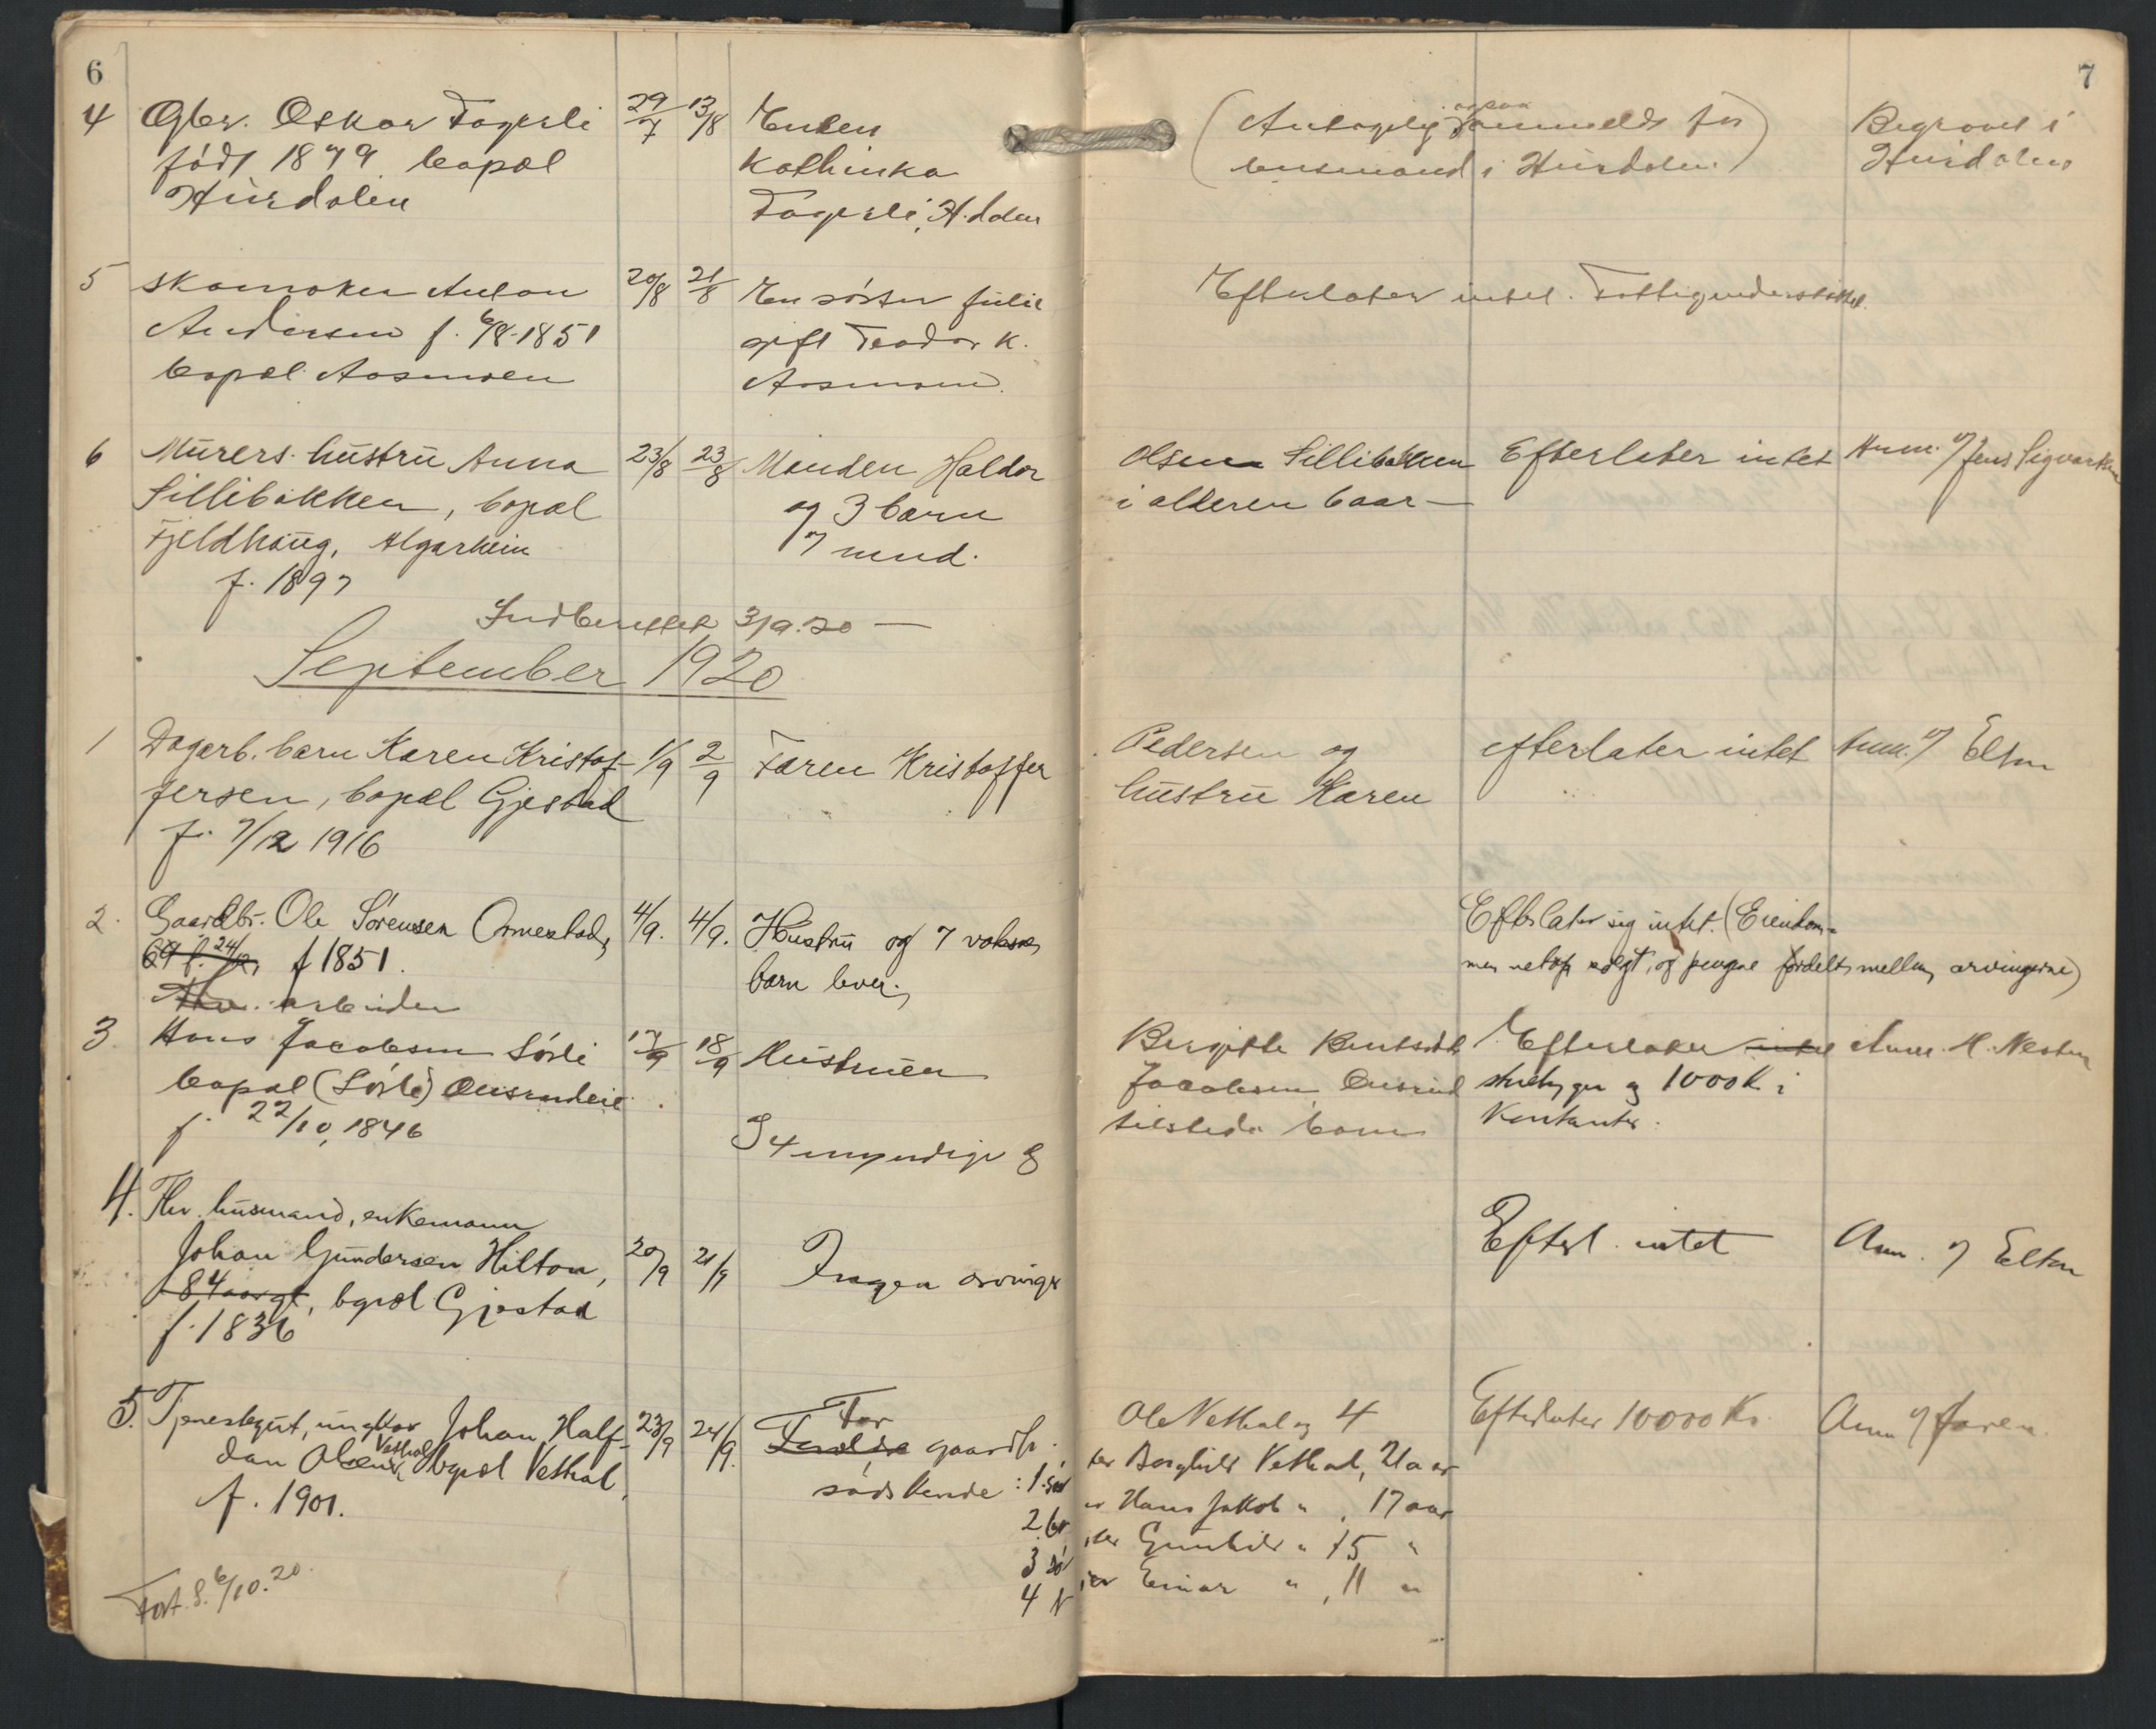 6
4 Gbr. Oskar Fagerli 29/7 13/8 Enken
født 1879 bopæl Kathinka
Hurdalen Fagerli, H.dalen
5 Skomaker Anton 20/8 21/8 En søster Julie
Andersen f. 6/8-1851 gift Teodor K.
bopæl Aasmoen Aasmoen.
6 Murers hustru Anna 23/8 23/8 Manden Haldor
Sillibakken, bopæl og 3 barn
Fjeldhaug, Algarheim 7 mnd.
f. 1897
Indberettet 3/9.20 —
September 1920
1 Dagarb. barn Karen Kristof- 1/9 2/9 Faren Kristoffer
fersen, bopæl Gjestad
f. 7/12 1916
2. Gaardbr. Ole Sørensen Ormestad, 4/9. 4/9. Hustru og 7 voksne
69 f. 24/12 f 1851. barn lever.
arbeider
3 Hans Jacobsen Sørli 17/9 18/9 Hustruen
bopæl (Sørli) Ousrudeie
f. 22/10, 1846
4 myndige
4. Fhv. husmand, enkemann
Johan Gundersen Hilton, 20/9 21/9 Ingen arvinger
84 aar gl, bopæl Gjestad
f. 1836
5. Tjenestegut, ungkar Johan Half- 23/9 24/9. Far
dan Olsen Vethal bopæl Vethal, gaardbr.
f. 1901. sødskende: 1. sø
2 br
3 sø
4 br
Fort. S. 6/10.20.
7
(Antagelig ogsaa anmeldt for Begravet i
lensmand i Hurdalen) Hurdalen
Efterlater intet. Fattigunderstøttet.
Olsen Sillibakken Efterlater intet Anm. v/ Jens Sigvartsen
i alderen 6 aar —
Pedersen og efterlater intet Anm. v/ Elton
hustru Karen
Efterlater sig intet. (Eiendom-
men netop solgt, og pengene fordelt mellem arvingerne)
Birgitte Berntsdtr Efterlater intet Anm. H. Nesten
Jacobsen Ousrud stuebygn og 1000 Kr i
tilstede barn Kontanter.
Efterl. intet Anm. v/ Elton
Ole Vethal og 4 Efterlater 10000 Kr. Anm v/ faren.
ter Borghild Vethal, 21 aar
or Hans Jakob " , 17 aar
ster Gunhild " 15 "
or Einar " , 11 "